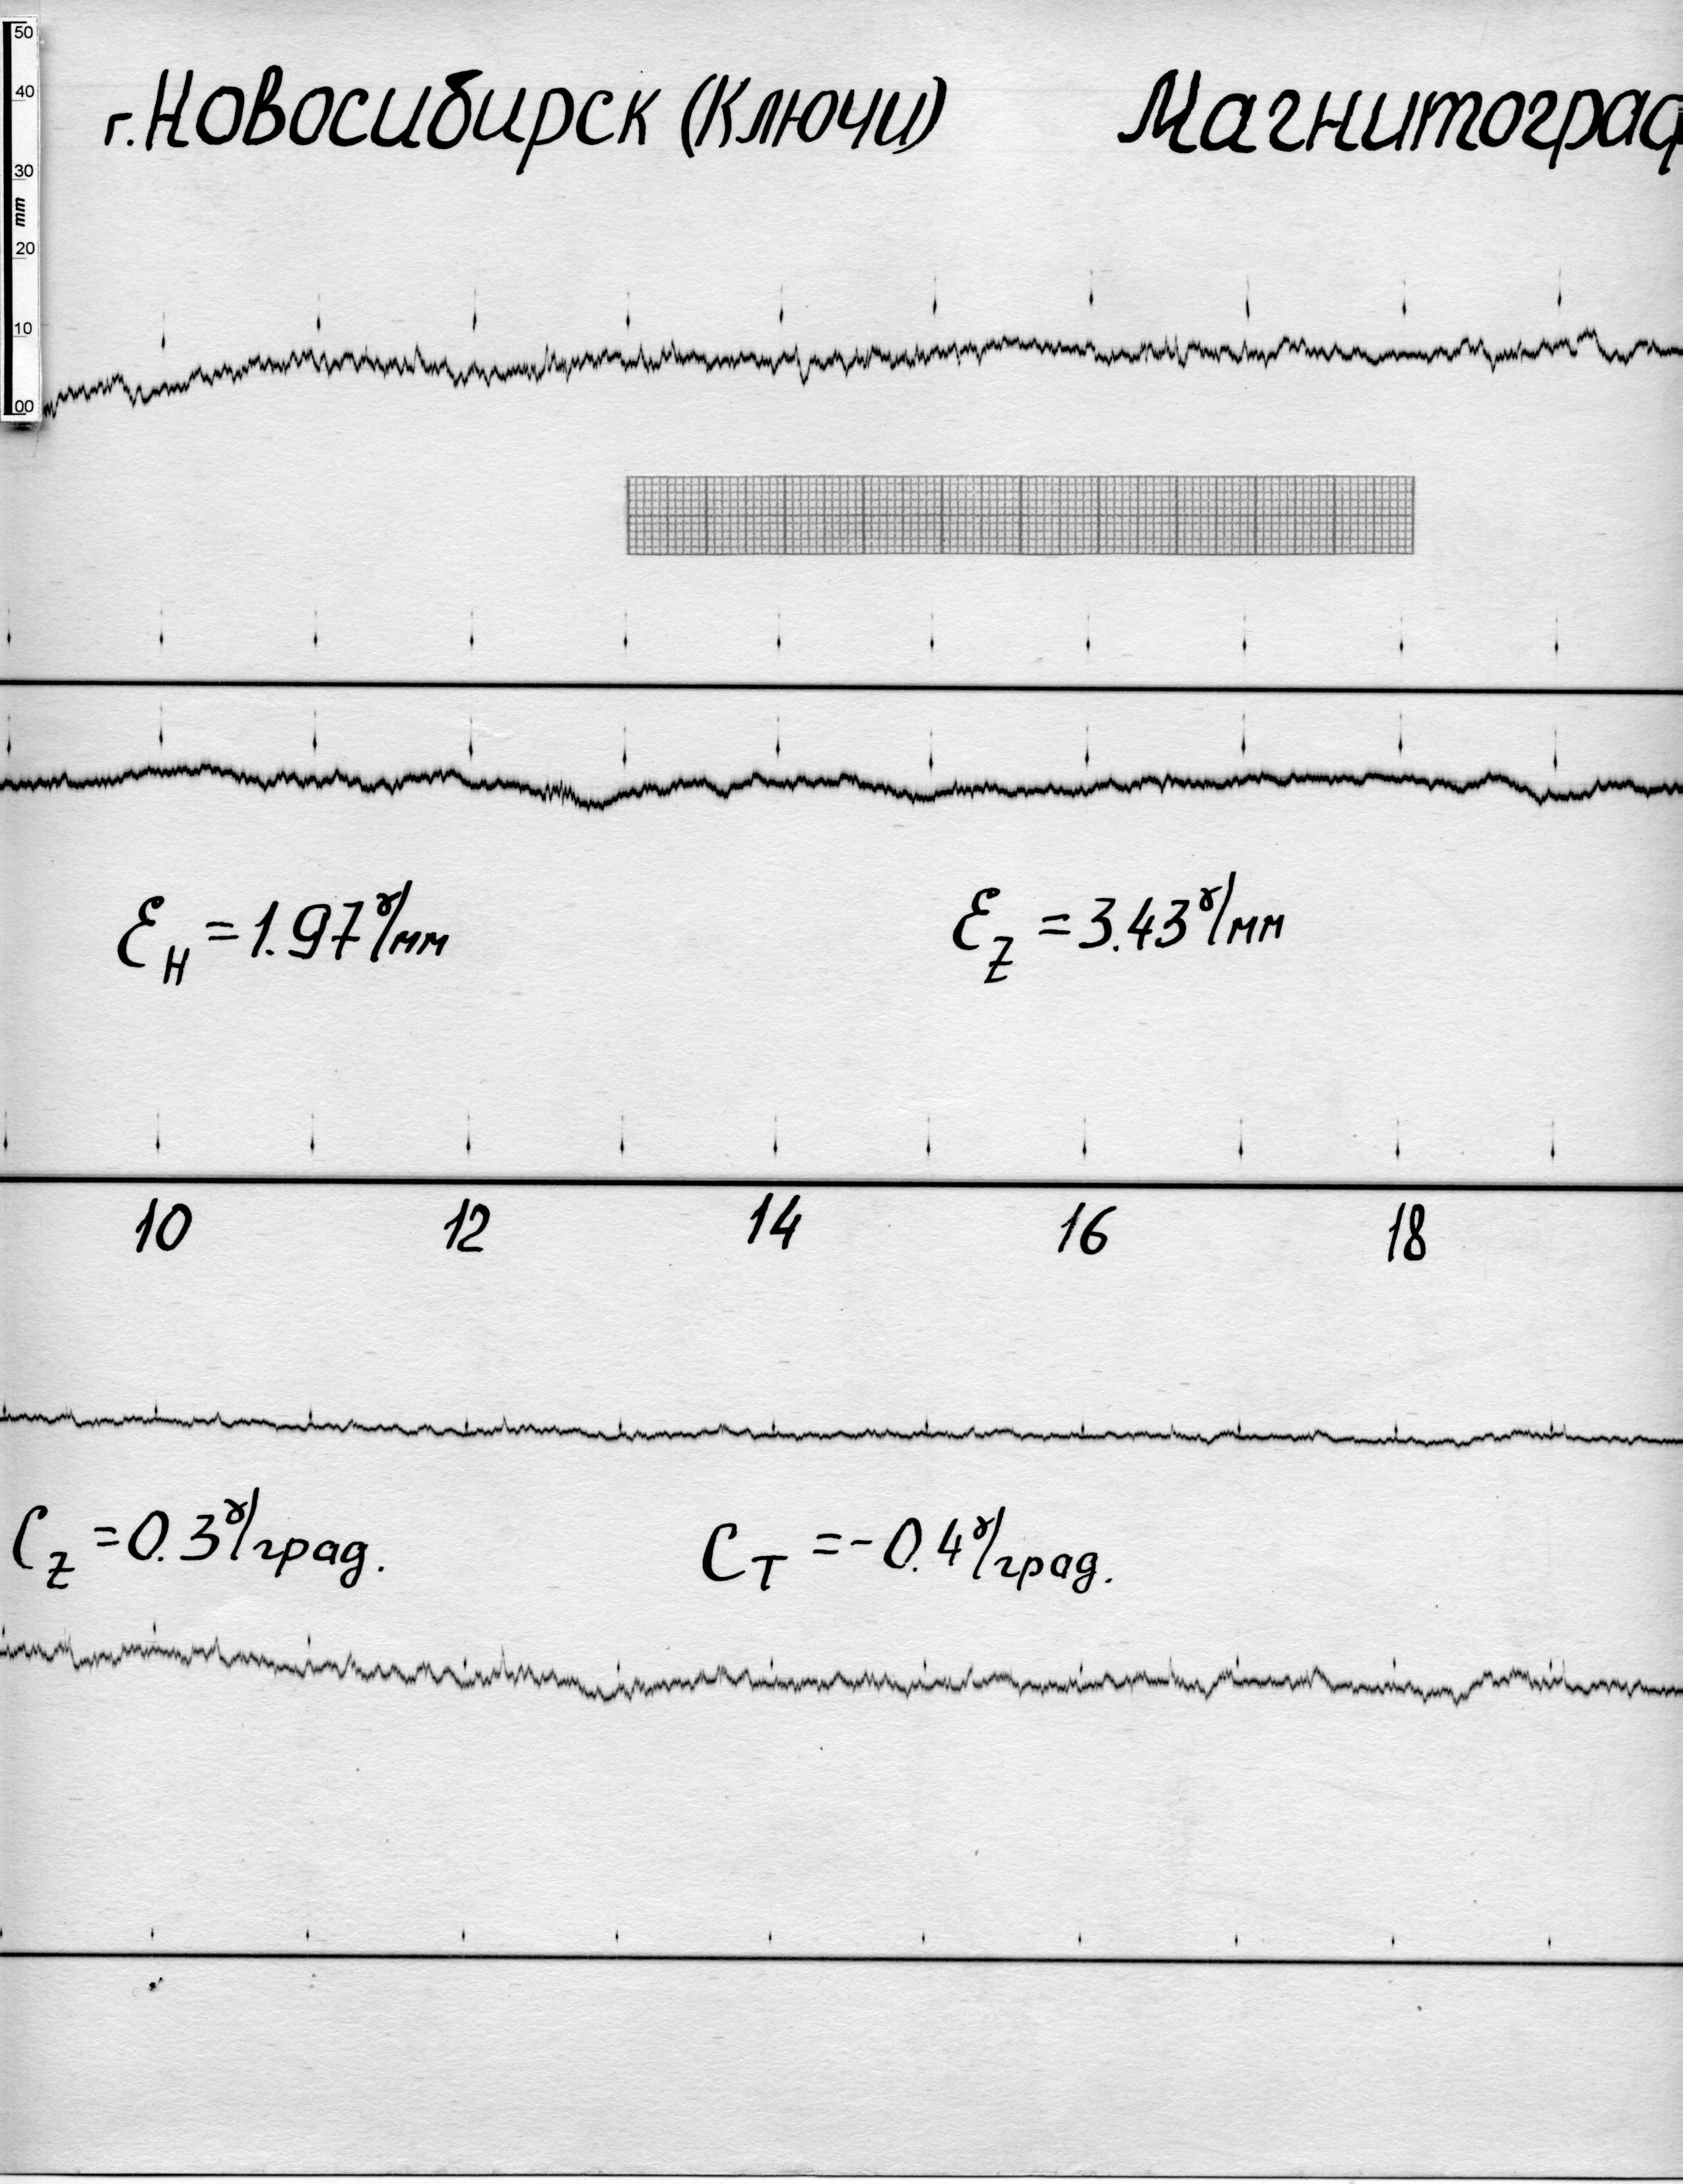 50
40
30
mm
20
10
00
г. Новосибирск (Ключи) Магнитограф
Ɛ_H = 1.97 γ/мм Ɛ_Z = 3.43 γ/мм
10 12 14 16 18
C_Z = 0.3 γ/град. C_T = -0.4 γ/град.